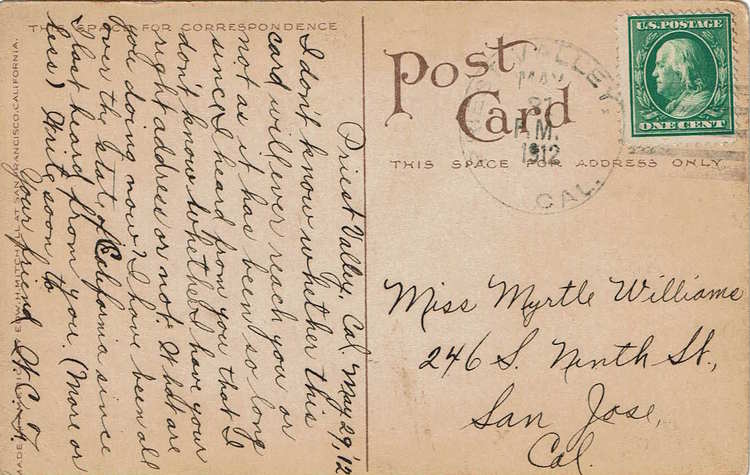 THIS SPACE FOR CORRESPONDENCE
Priest Valley, Cal. May 29, '12
I don't know whither this
card will ever reach you or
not as it has been so long
since I heard from you that I
don't know whether I have your
right address or not. What are
you doing now? I have been all
over the State of California since
I last heard from you. (More or
less) Write soon, to
Your friend
Post
Card
THIS SPACE FOR ADDRESS ONLY
VALLEY,
MAY
P.M.
1912
CAL.
U.S. POSTAGE
ONE CENT
Miss Myrtle Williams
246 S. Ninth St.,
San Jose,
Cal.
SAN FRANCISCO, CALIFORNIA.